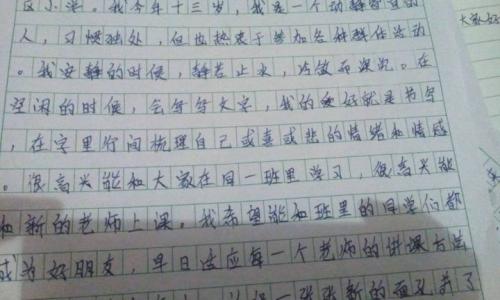 区小学。我今年十三岁，我是一个动静皆宜的
人，习惯独处，但也热衷于参加各种群体活动
。我安静的时候，静若止水，冷傲而深沉。在
空闲的时候，会写写文字，我的爱好就是书写
，在字里行间梳理自己或喜或悲的情绪和情感
。很高兴能和大家在同一班里学习，很高兴能
和新的老师上课。我希望能和班里的同学们都
成为好朋友，早日适应每一个老师的讲课方法
一张张新的面孔，并了
大家好